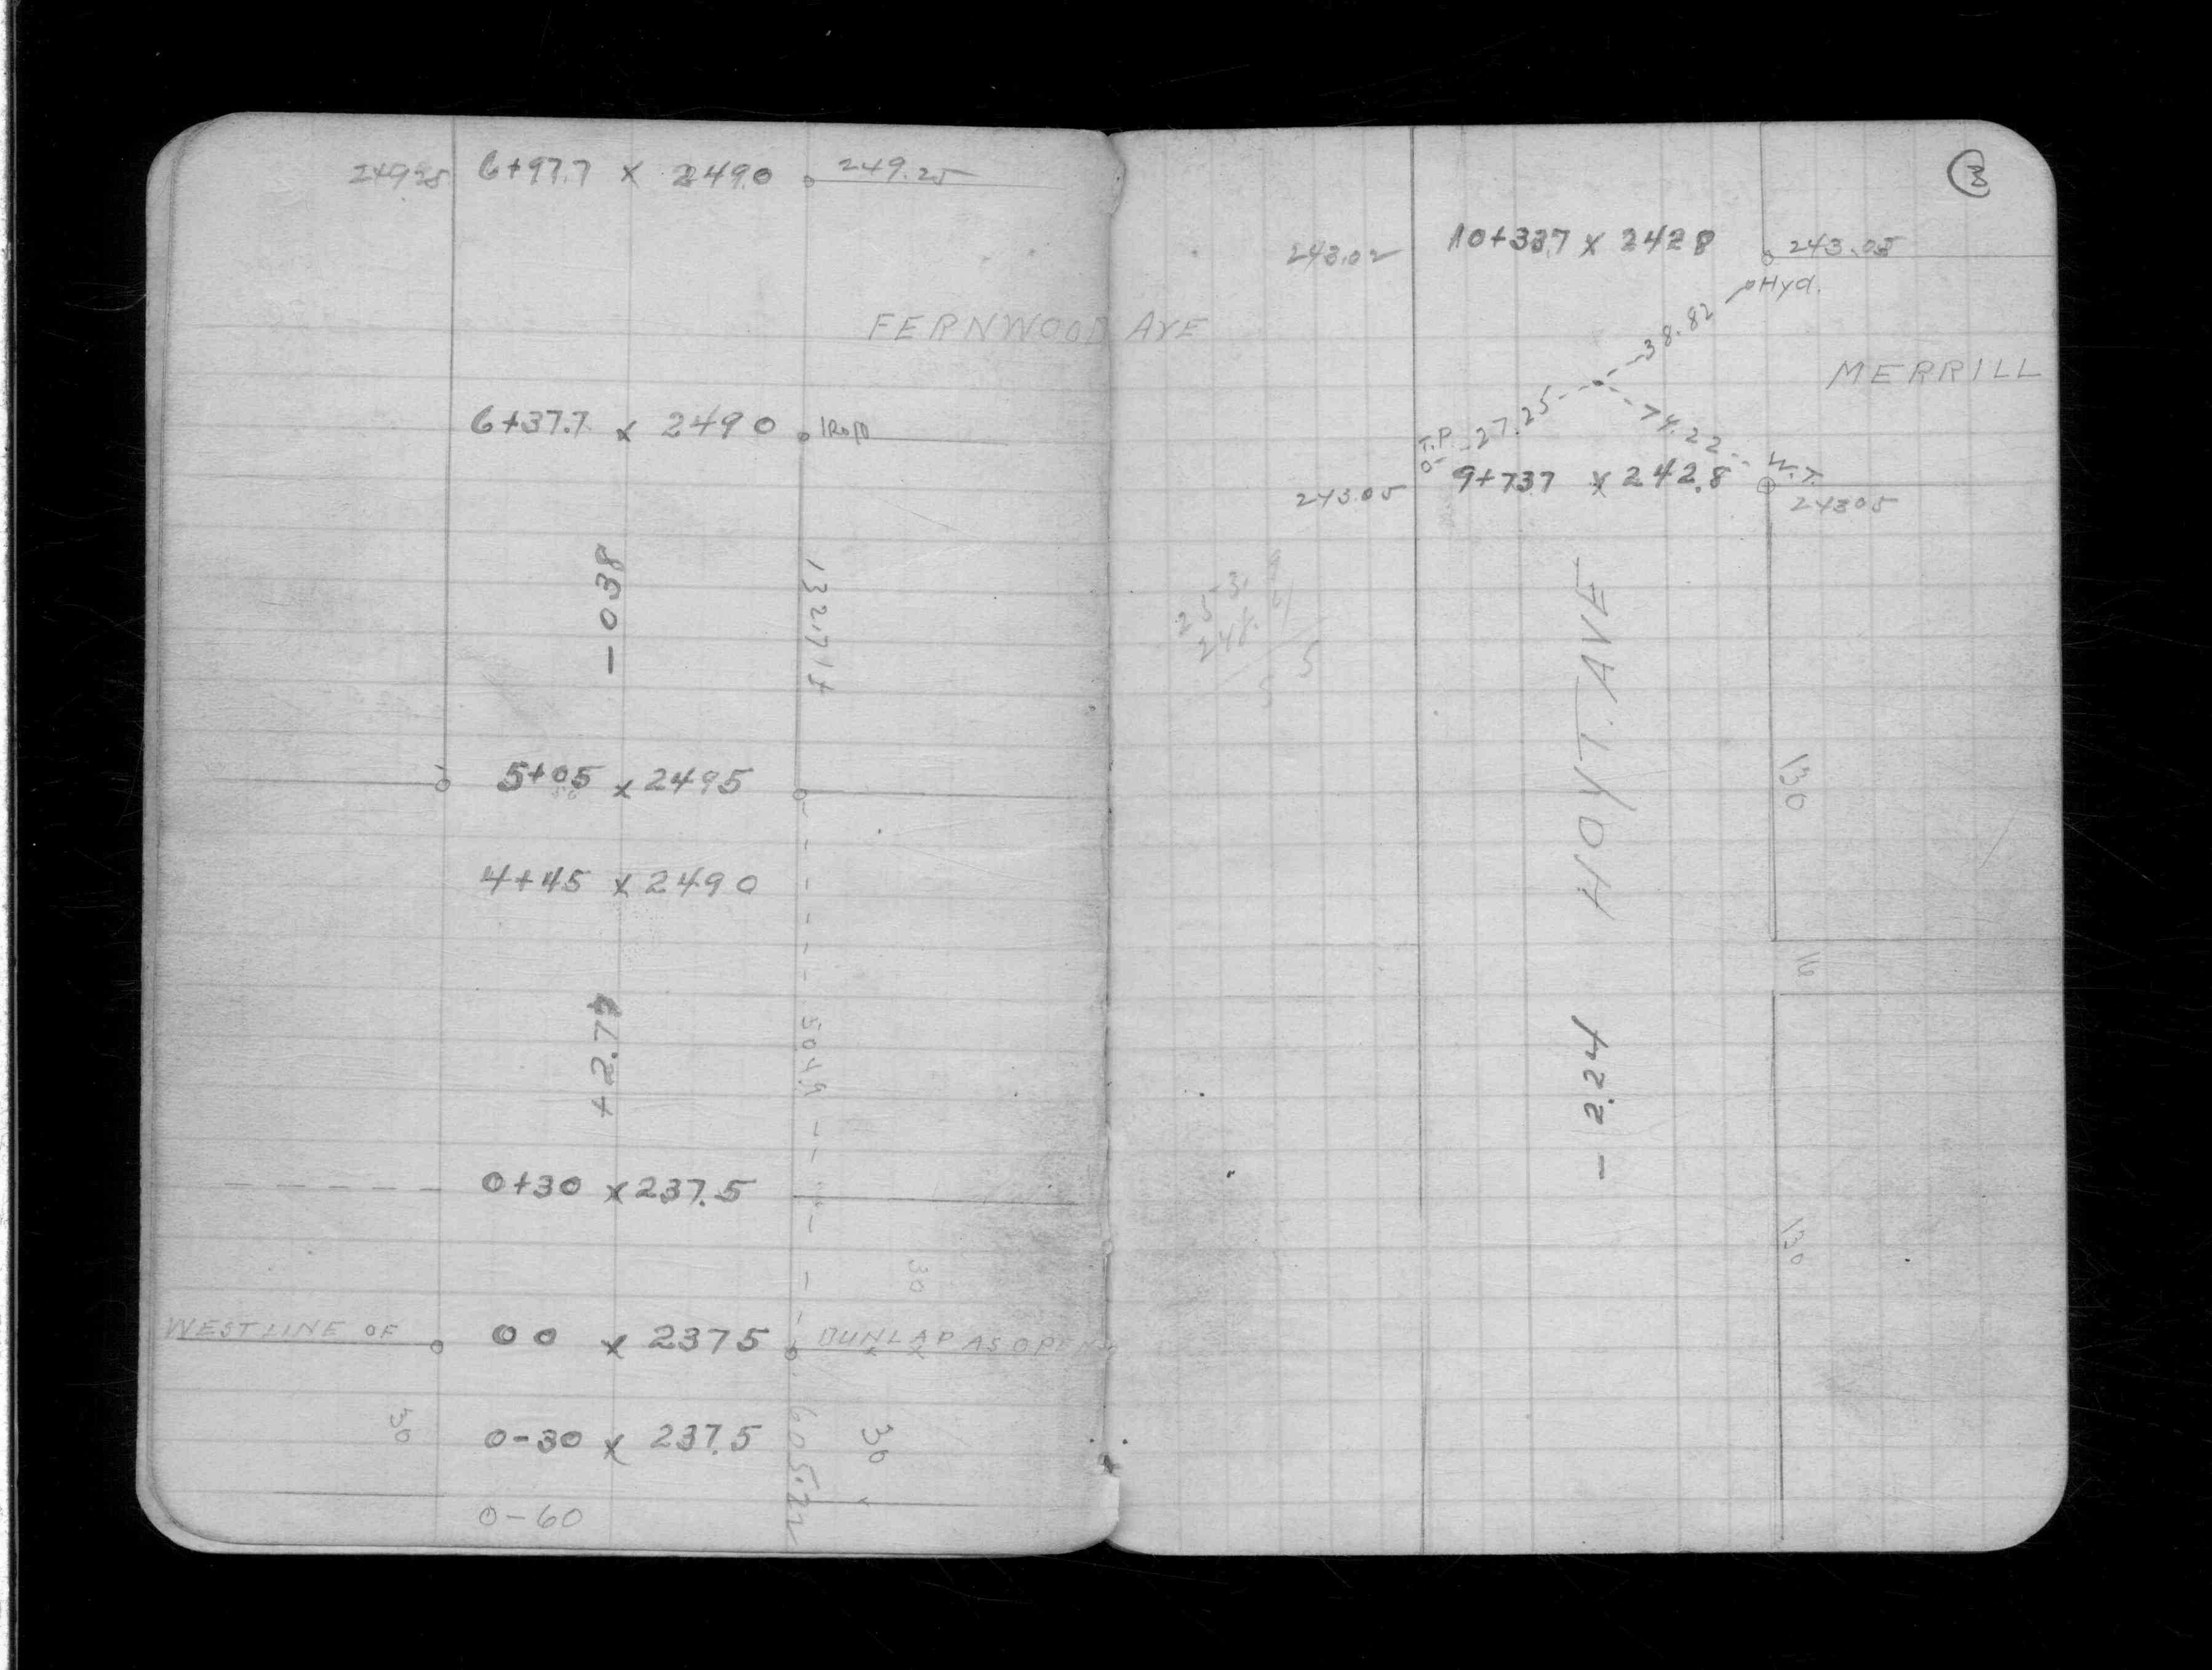 6+97.7 x 249.0 249.25
FERNWOOD AVE
6+37.7 x 2490 IRON
-038
132.71
5+05 x 2495
4+45 x 2490
+2.77
504.9
0+30 x 237.5
30
WEST LINE OF 00 x 2375 DUNLAP AS OPEN
30 0-30 x 237.5 30
605.21
0-60
3
243.02 10+33.7 x 2428 243.05
Hyd.
38.82
MERRILL
27.25
74.22
T.P.
W.T.
243.05 9+737 x 242.8 24305
HOYT AVE
130
16
-2.24
130